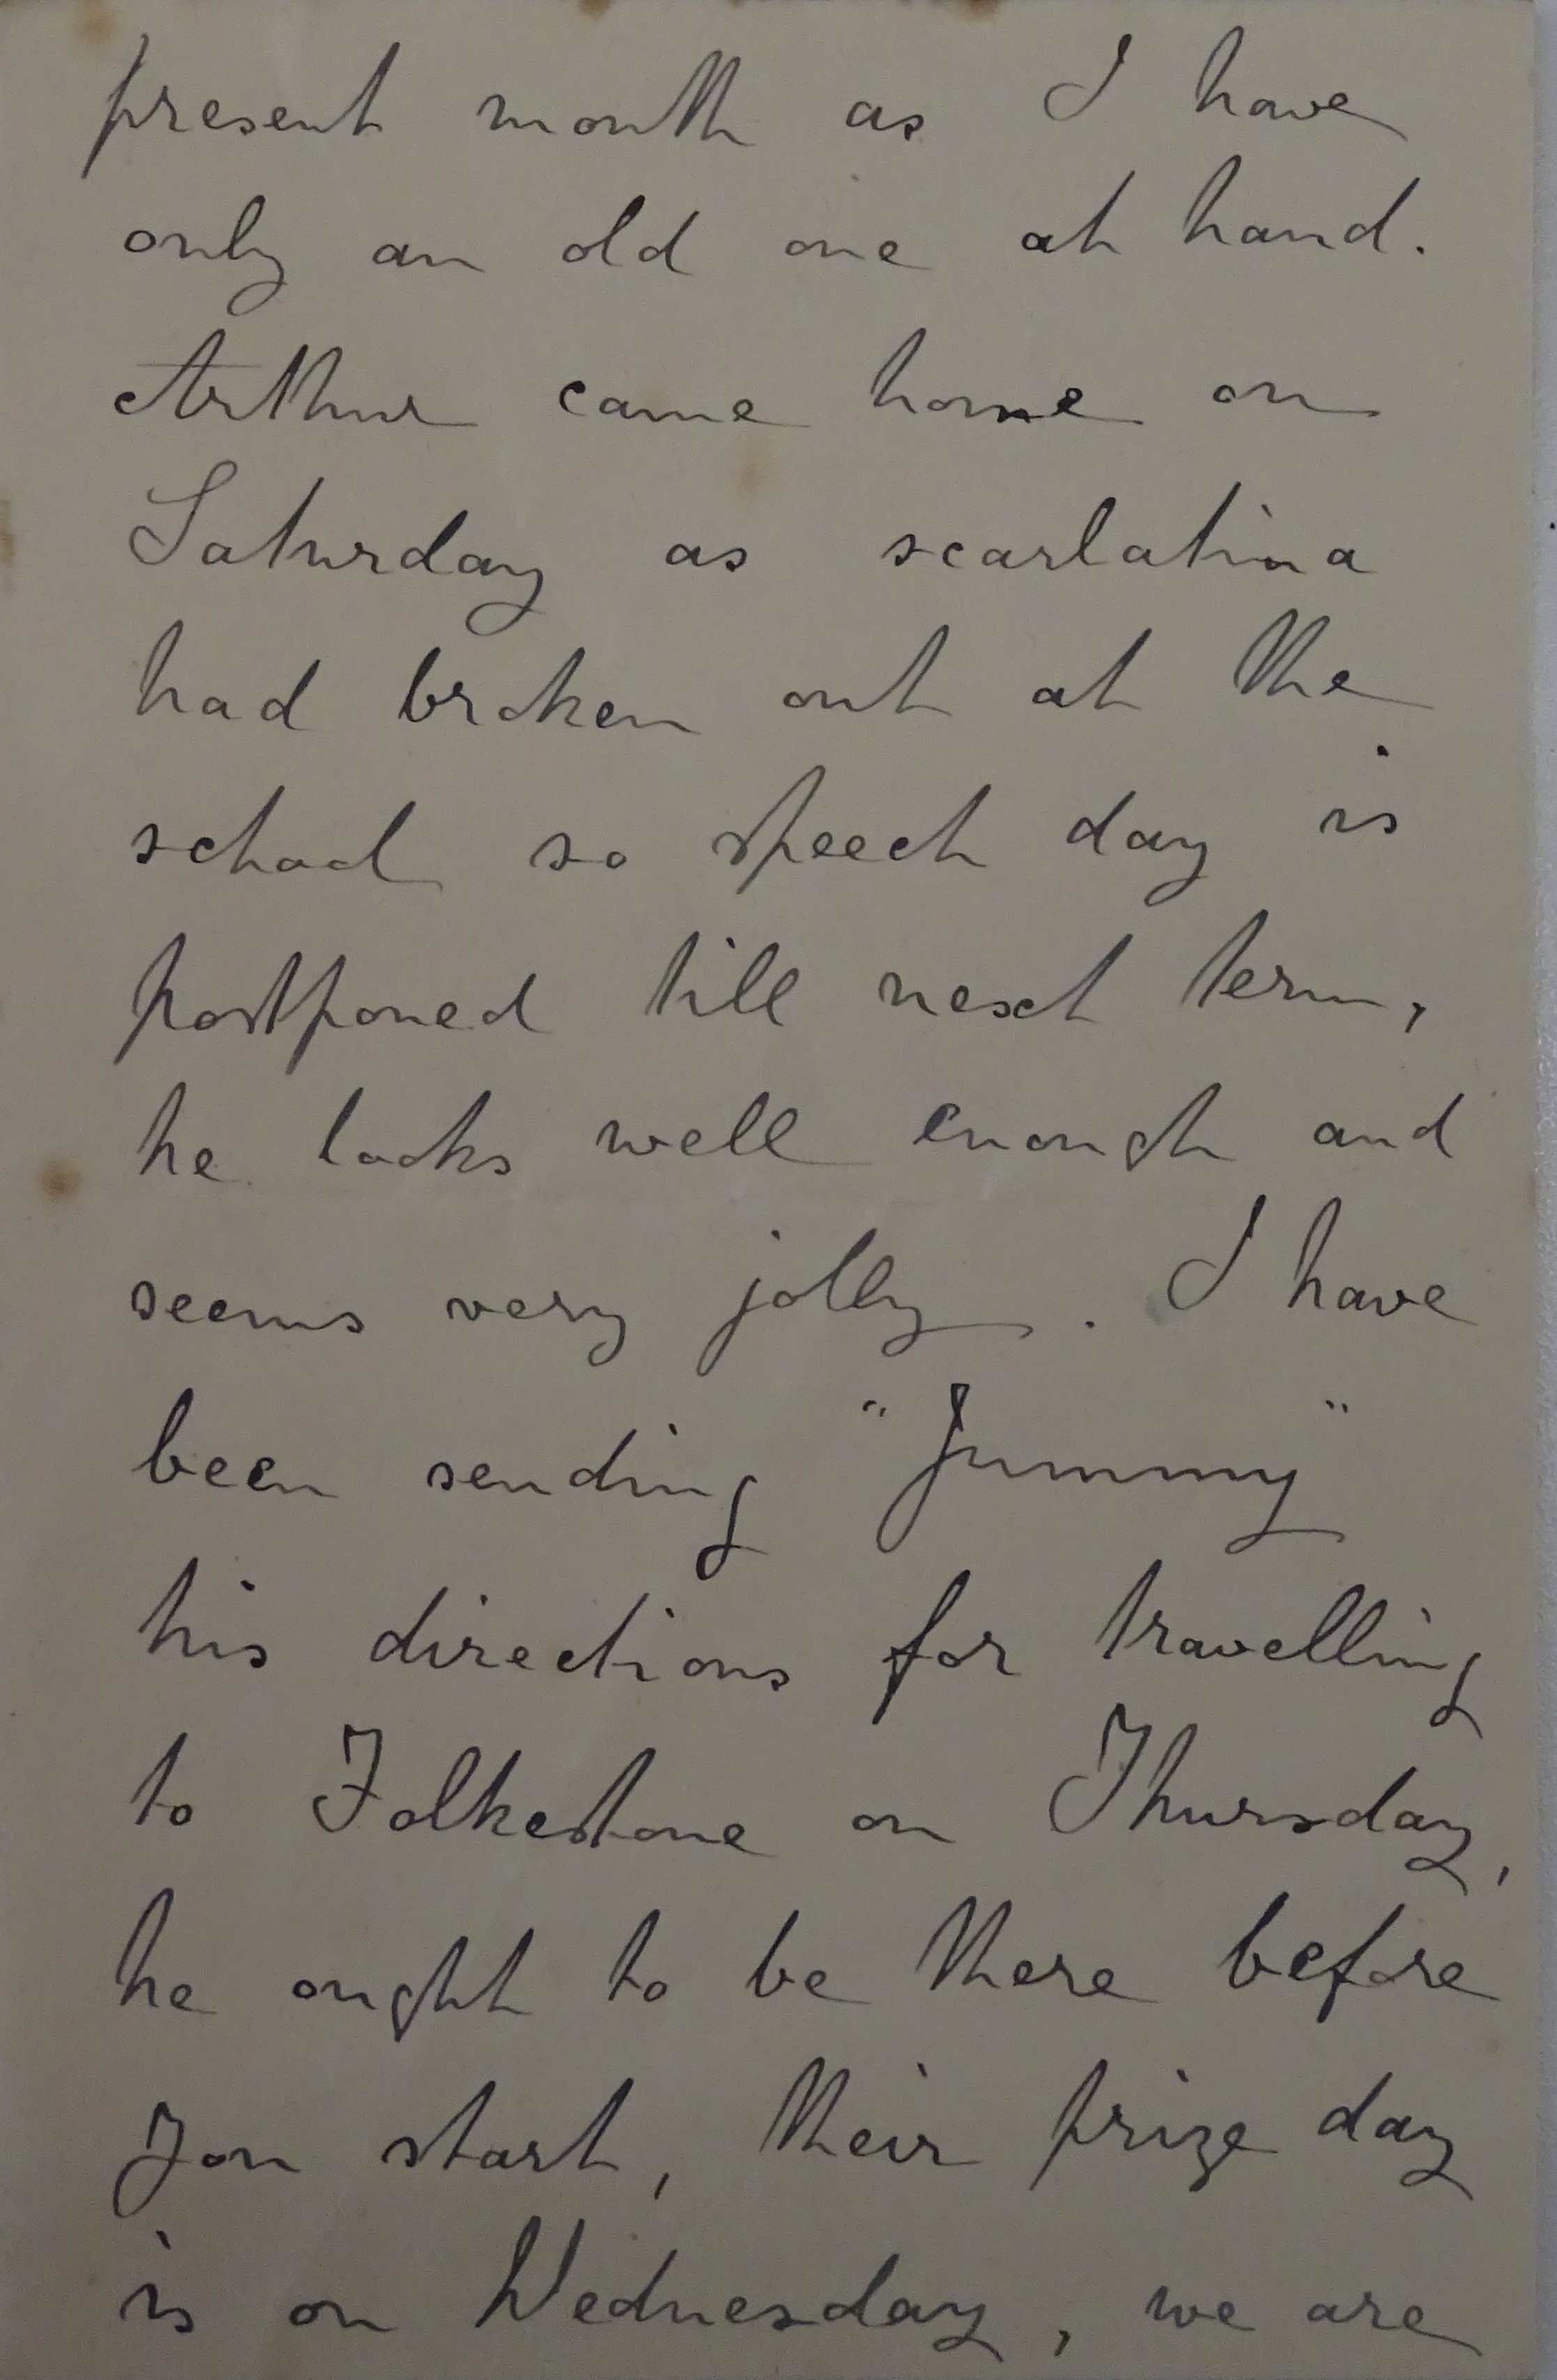 present month as I have
only an old one at hand.
Arthur came home on
Saturday as scarlatina
had broken out at the
school so speech day is
postponed till next term,
he looks well enough and
seems very jolly. I have
been sending "Jummy"
his directions for travelling
to Folkestone on Thursday,
he ought to be there before
you start, their prize day
is on Wednesday, we are